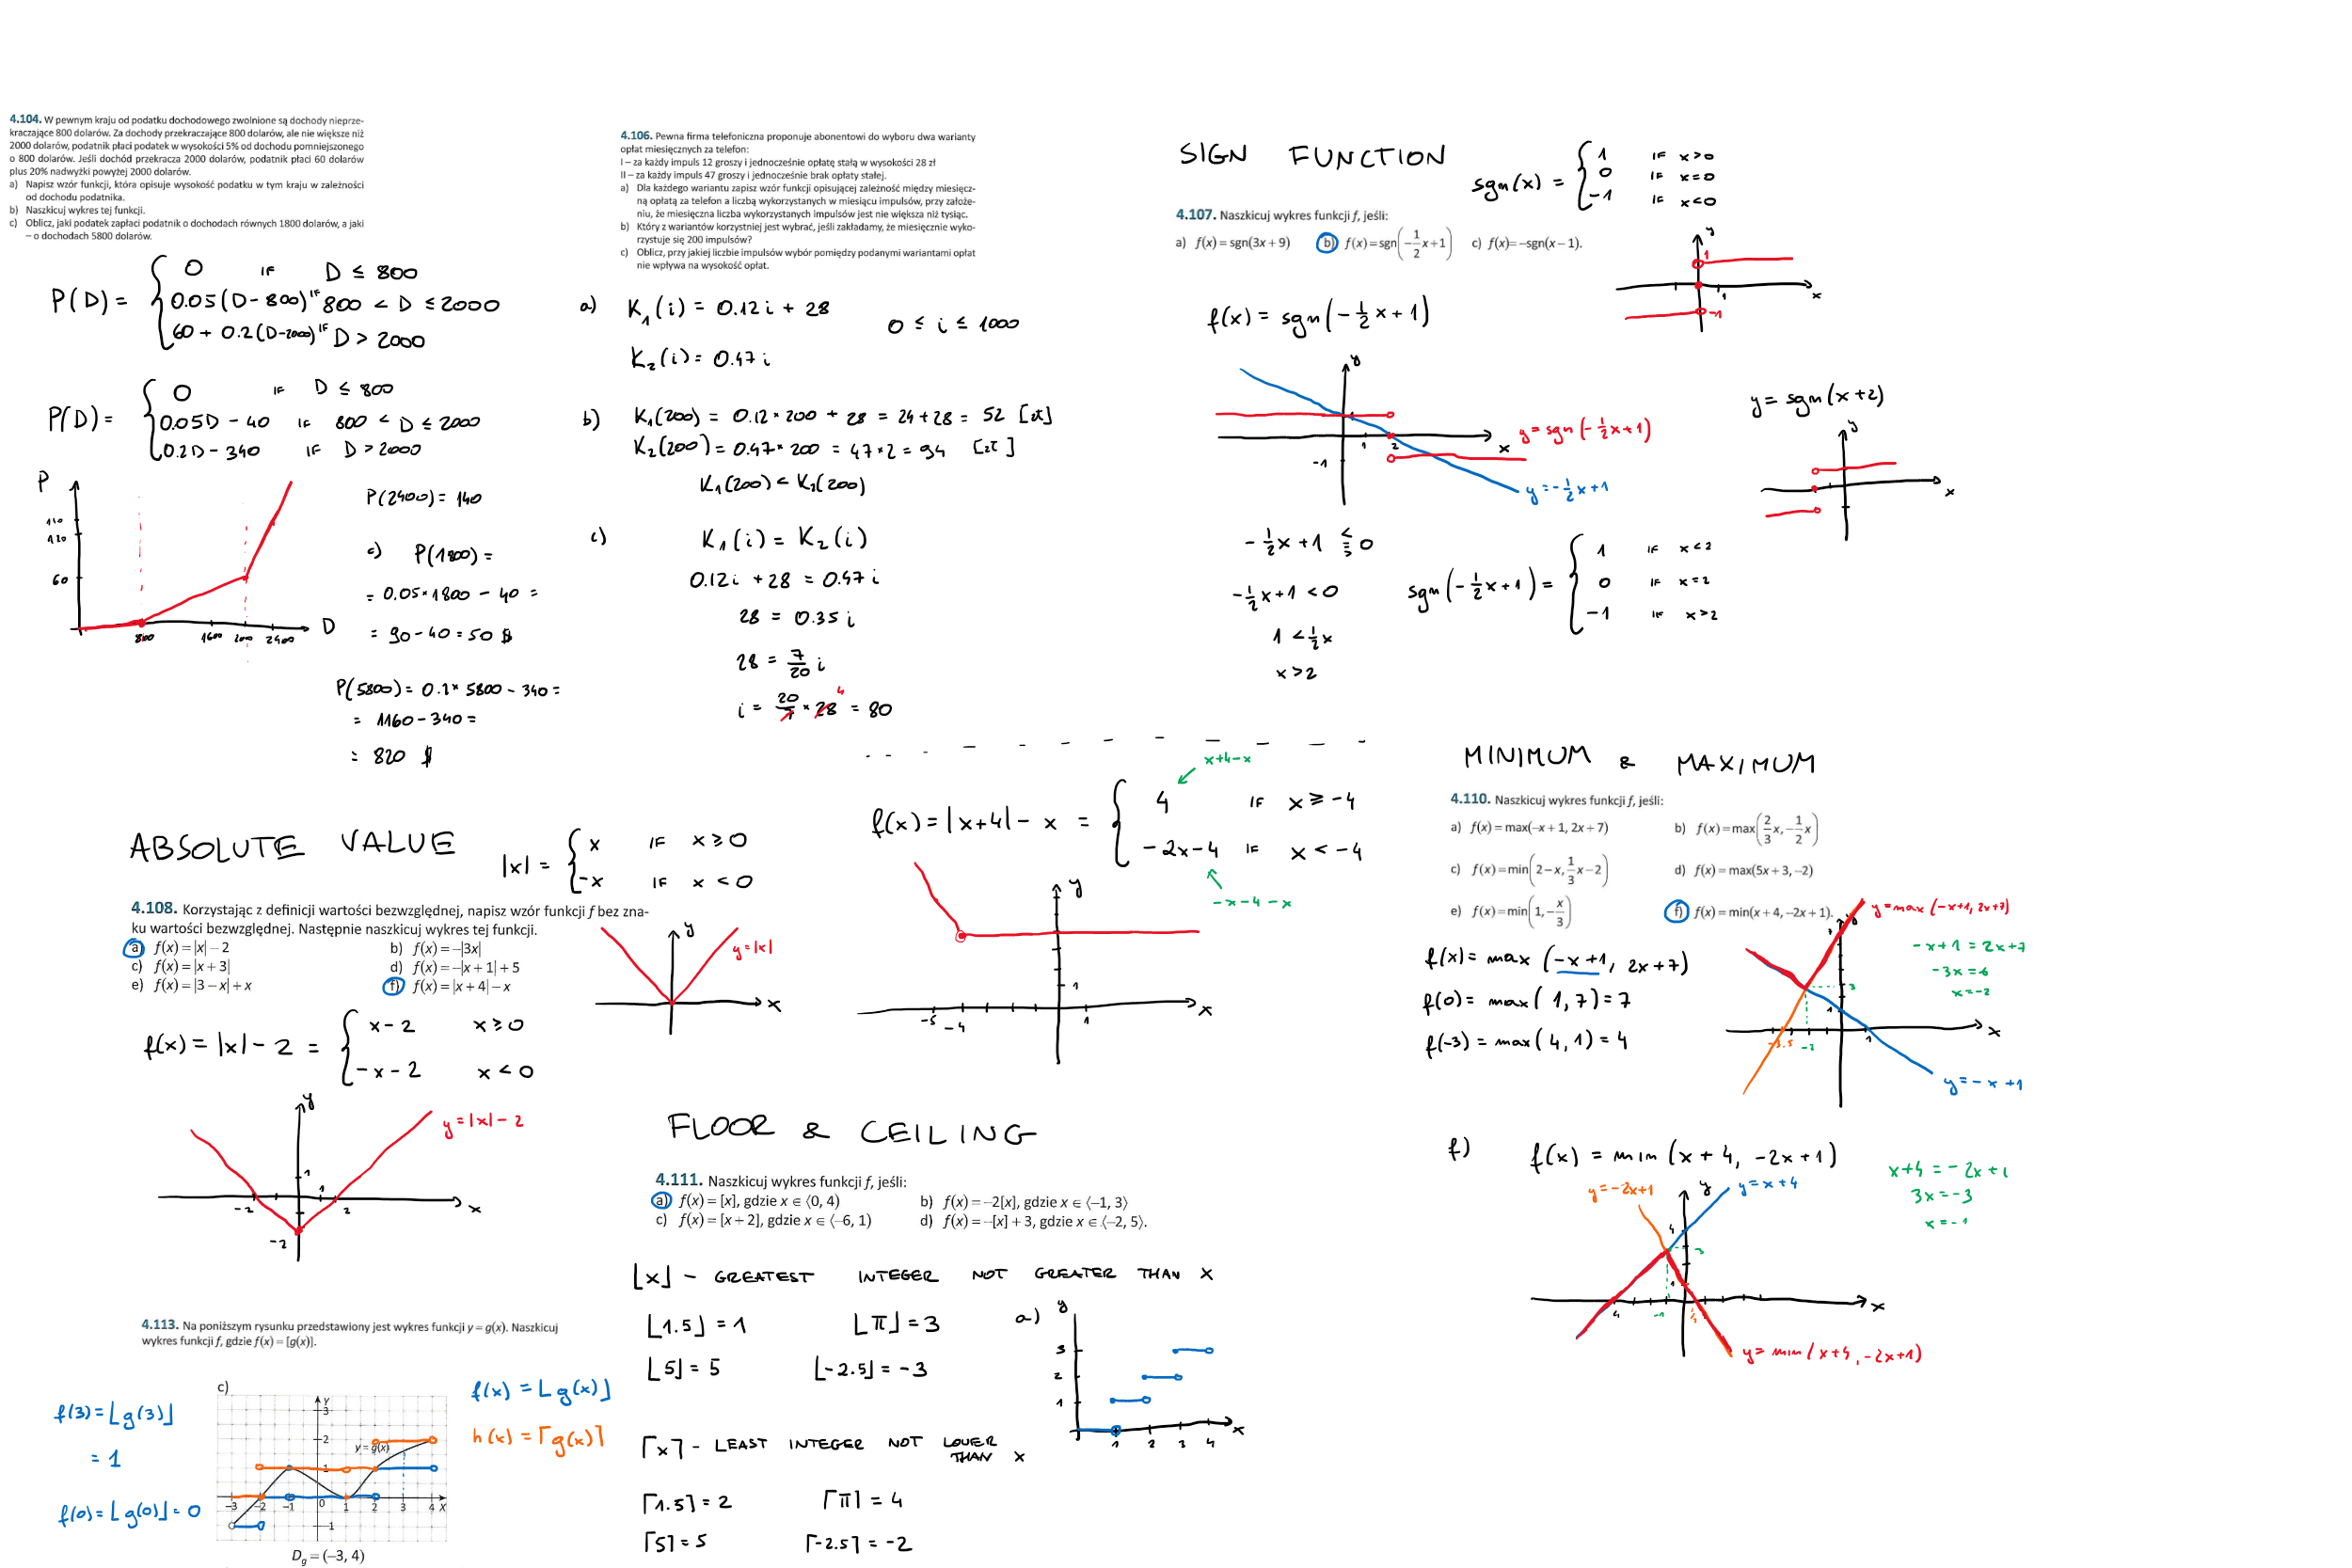 4.104. W pewnym kraju od podatku dochodowego zwolnione są dochody nieprze-
kraczające 800 dolarów. Za dochody przekraczające 800 dolarów, ale nie większe niż
2000 dolarów, podatnik płaci podatek w wysokości 5% od dochodu pomniejszonego
o 800 dolarów. Jeśli dochód przekracza 2000 dolarów, podatnik płaci 60 dolarów
plus 20% nadwyżki powyżej 2000 dolarów.
a) Napisz wzór funkcji, która opisuje wysokość podatku w tym kraju w zależności
od dochodu podatnika.
b) Naszkicuj wykres tej funkcji.
c) Oblicz, jaki podatek zapłaci podatnik o dochodach równych 1800 dolarów, a jaki
– o dochodach 5800 dolarów.
P(D) = { 0 IF D ≤ 800
0.05(D-800) IF 800 < D ≤ 2000
60 + 0.2(D-2000) IF D > 2000
P(D) = { 0 IF D ≤ 800
0.05D - 40 IF 800 < D ≤ 2000
0.2D - 340 IF D > 2000
P
140
120
60
800 1600 2000 2400 D
P(2400) = 140
c) P(1800) =
= 0.05*1800 - 40 =
= 90-40=50 $
P(5800) = 0.2* 5800 - 340 =
= 1160-340=
= 820 $
4.106. Pewna firma telefoniczna proponuje abonentowi do wyboru dwa warianty
opłat miesięcznych za telefon:
I – za każdy impuls 12 groszy i jednocześnie opłatę stałą w wysokości 28 zł
II – za każdy impuls 47 groszy i jednocześnie brak opłaty stałej.
a) Dla każdego wariantu zapisz wzór funkcji opisującej zależność między miesięcz-
ną opłatą za telefon a liczbą wykorzystanych w miesiącu impulsów, przy założe-
niu, że miesięczna liczba wykorzystanych impulsów jest nie większa niż tysiąc.
b) Który z wariantów korzystniej jest wybrać, jeśli zakładamy, że miesięcznie wyko-
rzystuje się 200 impulsów?
c) Oblicz, przy jakiej liczbie impulsów wybór pomiędzy podanymi wariantami opłat
nie wpływa na wysokość opłat.
a) K₁(i) = 0.12i + 28
0 ≤ i ≤ 1000
K₂(i) = 0.47i
b) K₁(200) = 0.12*200 + 28 = 24+28 = 52 [zł]
K₂(200) = 0.47*200 = 47*2 = 94 [zł]
K₁(200) < K₂(200)
c) K₁(i) = K₂(i)
0.12i + 28 = 0.47i
28 = 0.35i
28 = 7/20 i
i = 20/7 * 28 4 = 80
SIGN FUNCTION
sgn(x) = { 1 IF x>0
0 IF x=0
-1 IF x<0
4.107. Naszkicuj wykres funkcji f, jeśli:
a) f(x) = sgn(3x + 9) b) f(x) = sgn(-1/2x+1) c) f(x)= –sgn(x – 1).
y
1
1
x
-1
f(x) = sgn(-1/2x+1)
y
1 2 x
-1
y=sgn(-1/2x+1)
y=-1/2x+1
y=sgn(x+2)
y
x
-1/2x+1 ⋚ 0
-1/2x+1 < 0
1 < 1/2x
x>2
sgn(-1/2x+1) = { 1 IF x<2
0 IF x=2
-1 IF x>2
ABSOLUTE VALUE
|x| = { x IF x≥0
-x IF x<0
4.108. Korzystając z definicji wartości bezwzględnej, napisz wzór funkcji f bez zna-
ku wartości bezwzględnej. Następnie naszkicuj wykres tej funkcji.
a) f(x) = |x| – 2 b) f(x) = –|3x|
c) f(x) = |x + 3| d) f(x) = –|x + 1| + 5
e) f(x) = |3 – x| + x f) f(x) = |x + 4| – x
y
y=|x|
x
f(x) = |x| - 2 = { x-2 x≥0
-x-2 x<0
y
y=|x|-2
1
-2 1 2 x
-2
x+4-x
f(x) = |x+4| - x = { 4 IF x ≥ -4
-2x-4 IF x < -4
-x-4-x
y
1
-5 -4 1 x
MINIMUM & MAXIMUM
4.110. Naszkicuj wykres funkcji f, jeśli:
a) f(x) = max(–x + 1, 2x + 7) b) f(x)=max(2/3x,-1/2x)
c) f(x)=min(2-x,1/3x-2) d) f(x) = max(5x + 3, –2)
e) f(x)=min(1,-x/3) f) f(x) = min(x + 4, –2x + 1).
f(x) = max(-x+1, 2x+7)
f(0) = max(1,7) = 7
f(-3) = max(4,1) = 4
y=max(-x+1, 2x+7)
-x+1 = 2x+7
-3x=6
x=-2
y
7
3
1
-3.5 -2 1 x
y=-x+1
f) f(x) = min(x+4, -2x+1)
x+4 = -2x+1
3x=-3
x=-1
y=-2x+1 y y=x+4
4
3
1
-1 x
y=min(x+4, -2x+1)
FLOOR & CEILING
4.111. Naszkicuj wykres funkcji f, jeśli:
a) f(x) = [x], gdzie x ∈ ⟨0, 4) b) f(x) = –2[x], gdzie x ∈ ⟨–1, 3⟩
c) f(x) = [x + 2], gdzie x ∈ ⟨–6, 1) d) f(x) = –[x] + 3, gdzie x ∈ ⟨–2, 5⟩.
⌊x⌋ - GREATEST INTEGER NOT GREATER THAN x
⌊1.5⌋ = 1 ⌊π⌋ = 3
⌊5⌋ = 5 ⌊-2.5⌋ = -3
a) y
3
2
1
1 2 3 4 x
⌈x⌉ - LEAST INTEGER NOT LOWER
THAN x
⌈1.5⌉ = 2 ⌈π⌉ = 4
⌈5⌉ = 5 ⌈-2.5⌉ = -2
4.113. Na poniższym rysunku przedstawiony jest wykres funkcji y = g(x). Naszkicuj
wykres funkcji f, gdzie f(x) = [g(x)].
f(3) = ⌊g(3)⌋
= 1
f(0) = ⌊g(0)⌋ = 0
c)
y
3
2
y = g(x)
1
–3 –2 –1 0 1 2 3 4 x
–1
D_g = (–3, 4)
f(x) = ⌊g(x)⌋
h(x) = ⌈g(x)⌉